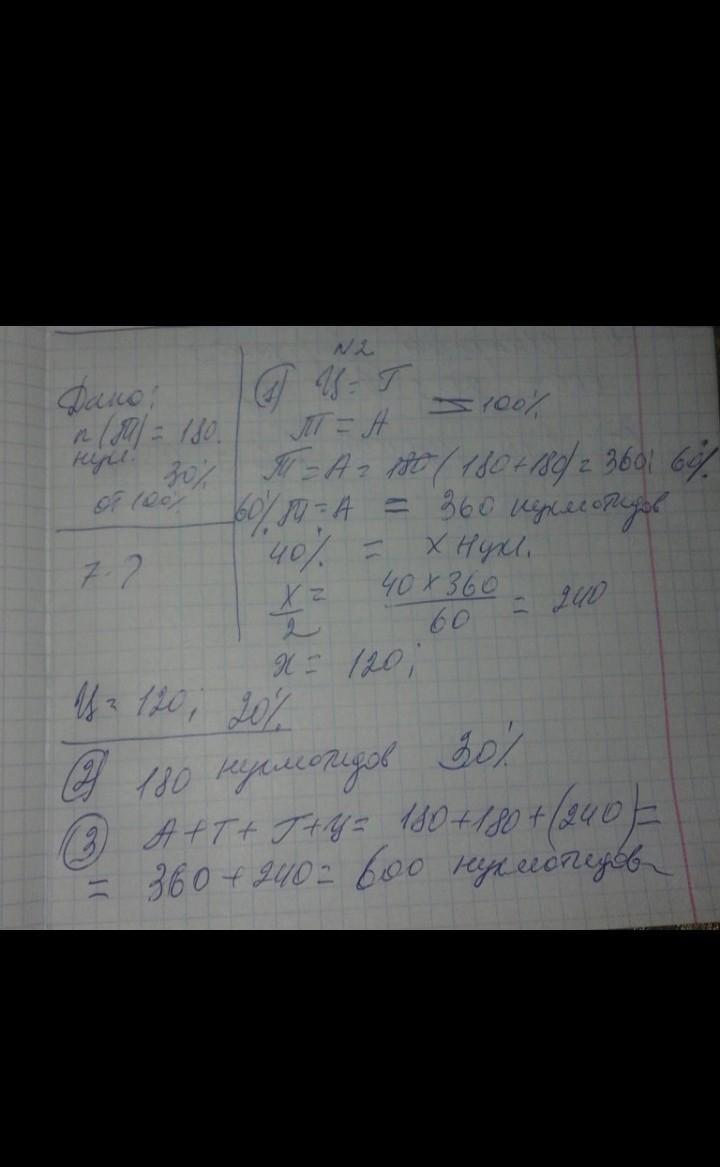 №2
Дано:
n (Т) = 180.
нукл.
30%
от 100%
?
1) Ц = Г
Т = А = 100%
Т = А = 180 (180+180) = 360; 60%
60% Т = А = 360 нуклеотидов
40% = х Нукл.
х/2 = 40 х 360 / 60 = 240
х = 120;
Ц = 120; 20%
2) 180 нуклеотидов 30%
3) А + Т + Г + Ц = 180 + 180 + (240) =
= 360 + 240 = 600 нуклеотидов